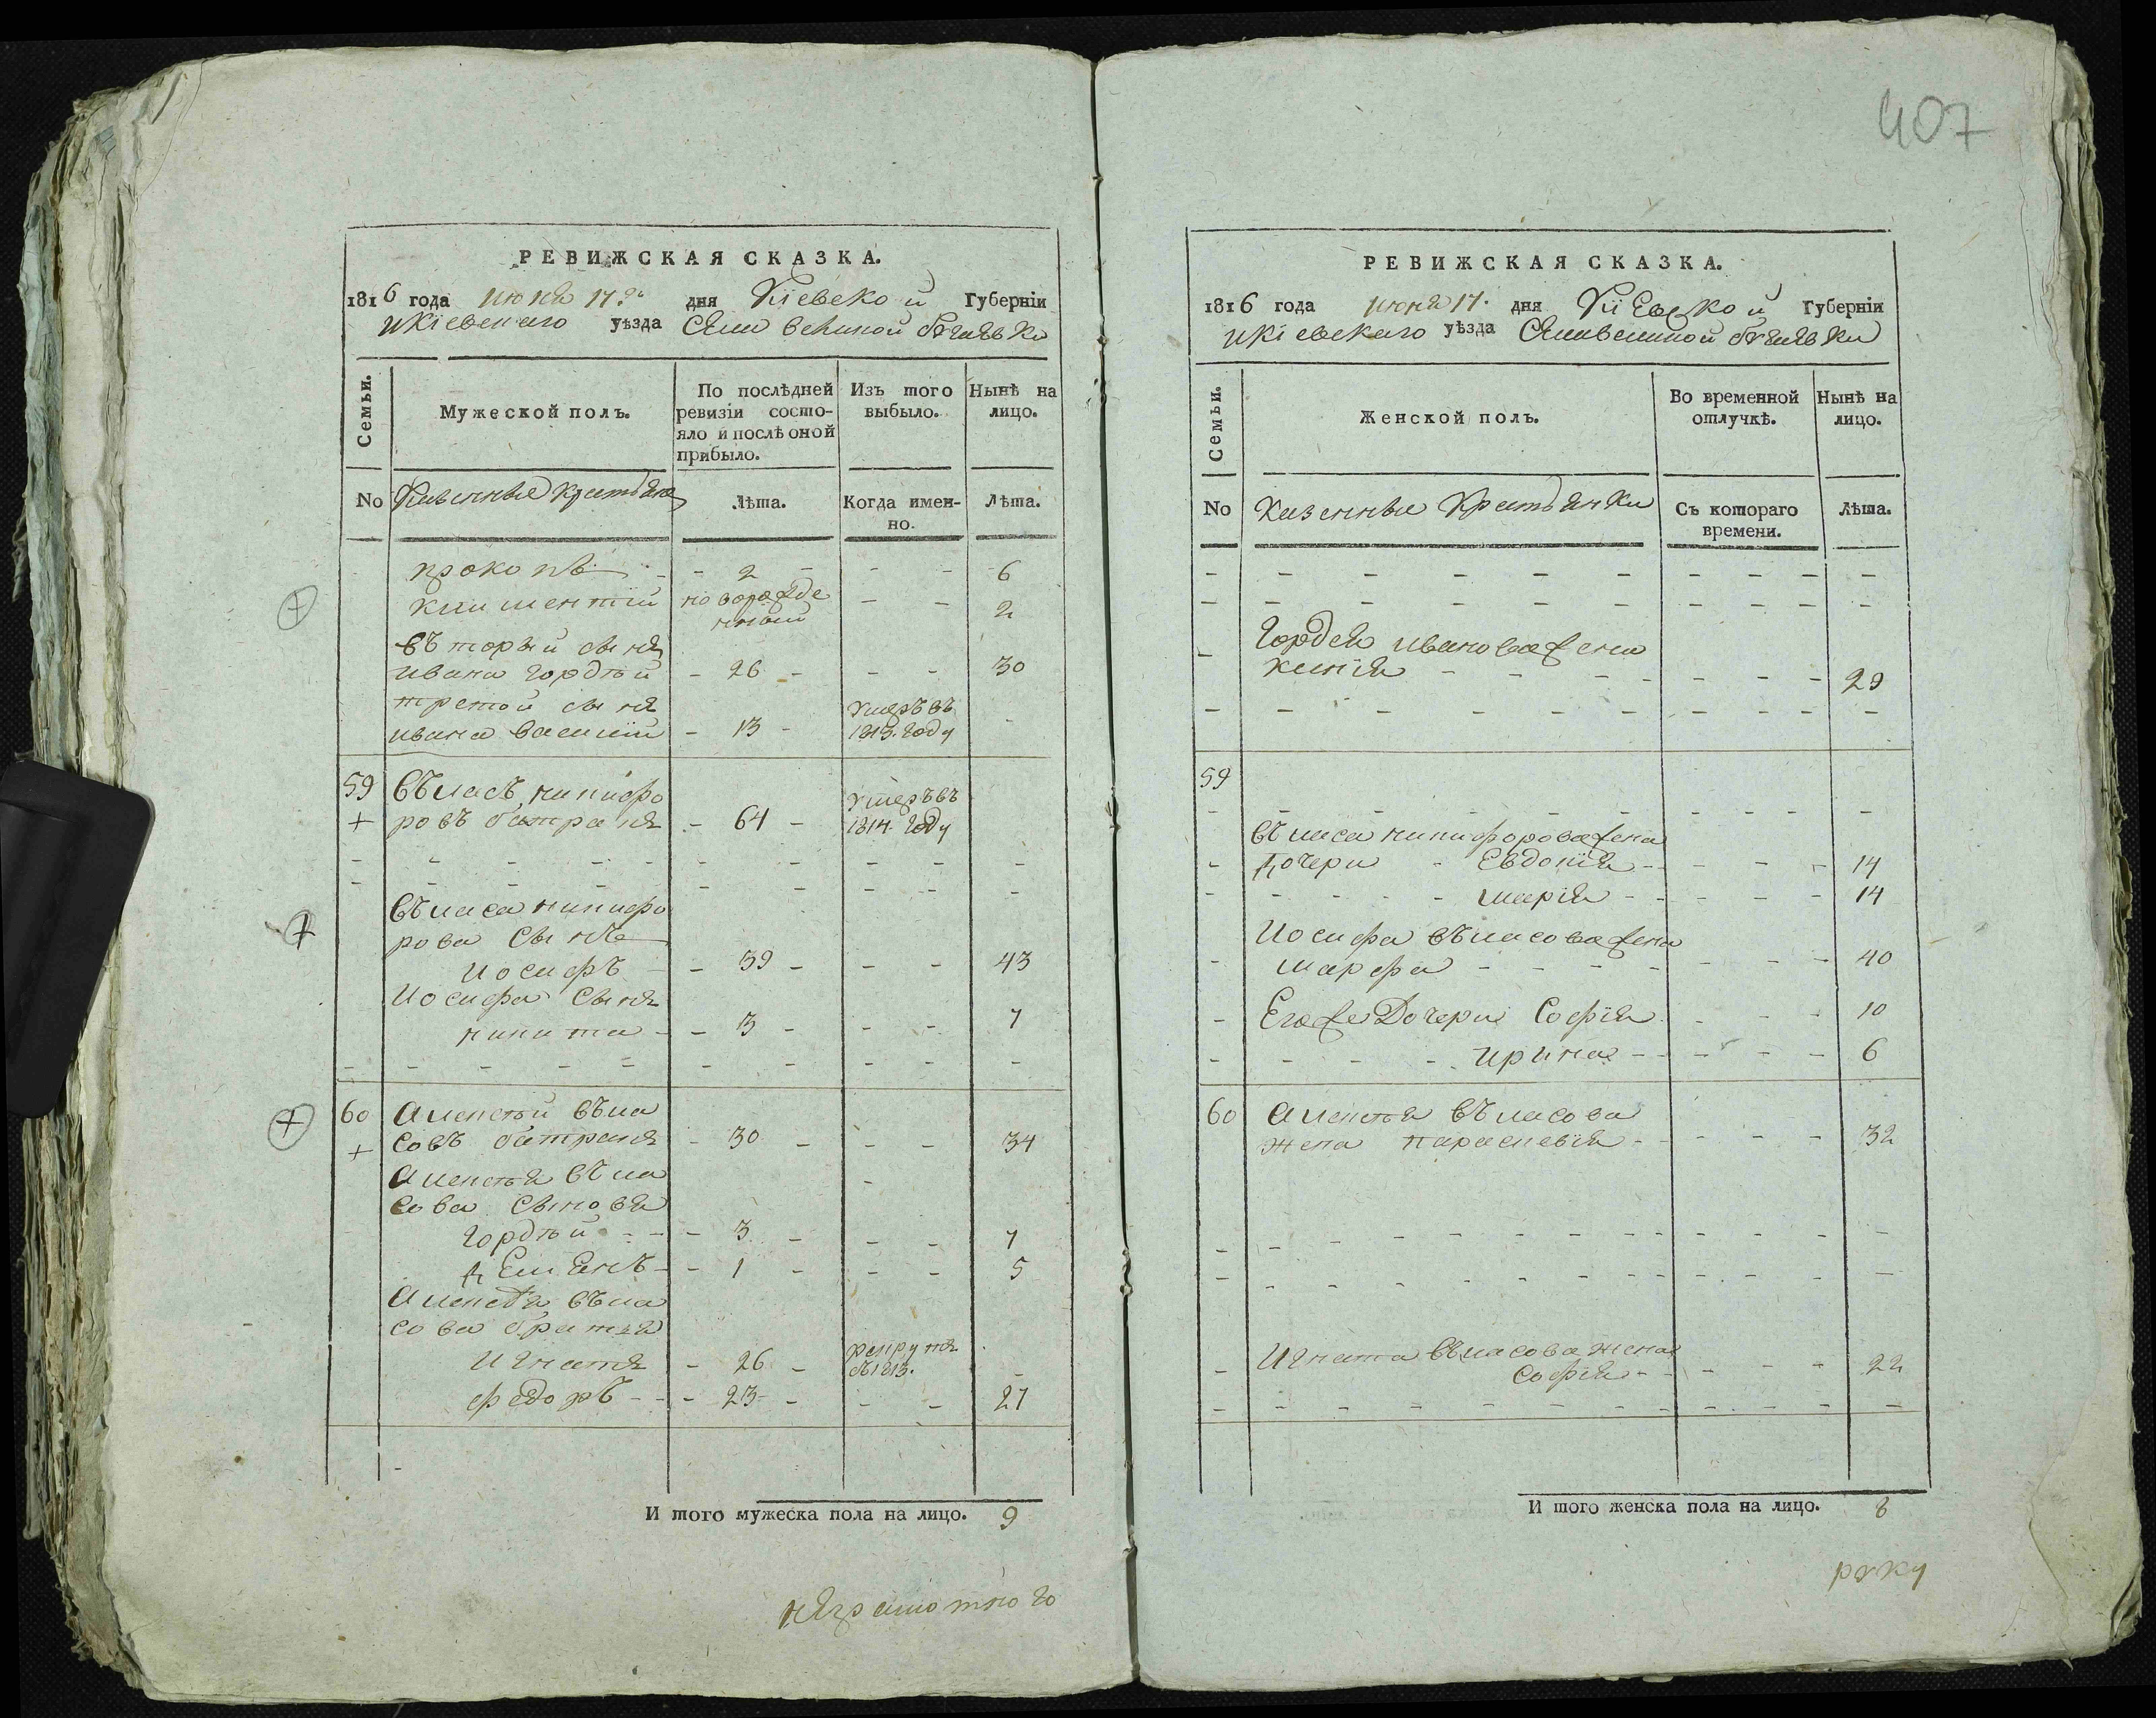 407
РЕВИЖСКАЯ СКАЗКА.
1816 года июня 17го дня Кіевской Губерніи
икіевскаго уѣзда Села великой бугаевки
Семьи.
Мужеской полъ.
По послѣдней ревизіи состо-
яло и послѣ оной прибыло.
Изъ того выбыло.
Нынѣ на лицо.
No Казенные крестьяне
Лѣта.
Когда имен-
но.
Лѣта.
прокопъ - 2 - - - 6
климентий новорожде
нный - - 2
въторый сынъ
ивана гордѣй - 26 - - - 30
третой сынъ Умеръ въ
ивана василий - 13 - 1813. году -
59 Вълась никифо Умеръ въ
+ ровъ батранъ - 64 - 1814. году
Въласа никифо
рова сынъ
Иосифъ - - 39 - - - 43
Иосифа сынъ
никита - - 3 - - - 7
60 Алексѣй вѣла
+ совъ батранъ - 30 - - - 34
Алексѣя вѣла
сова сыновя
гордѣй - - - 3 - - - 7
демянъ - - 1 - - - 5
Алексѣя вѣла
сова братья
Игнатъ - 26 - рекрутъ
въ 1813. -
федоръ - - - 23 - - - 27
И того мужеска пола на лицо. 9
неграмотного
РЕВИЖСКАЯ СКАЗКА.
1816 года июня 17. дня Кіевской Губерніи
икіевскаго уѣзда Села великой бугаевки
Семьи.
Женской полъ.
Во временной отлучкѣ.
Нынѣ на лицо.
No Казенные крестьянки
Съ котораго
времени.
Лѣта.
Гордея иванова жена
- - - 29
59
въласа никифорова жена
дочери - Евдокія - - - 14
марія - - - 14
Иосифа въласова жена
марфа - - - 40
Его же Дочери Софія - - - 10
ирина - - - 6
60 Алексѣя въласова
жена параскевія - - - 32
Игната въласова жена
софія - - - 22
И того женска пола на лицо. 8
руку